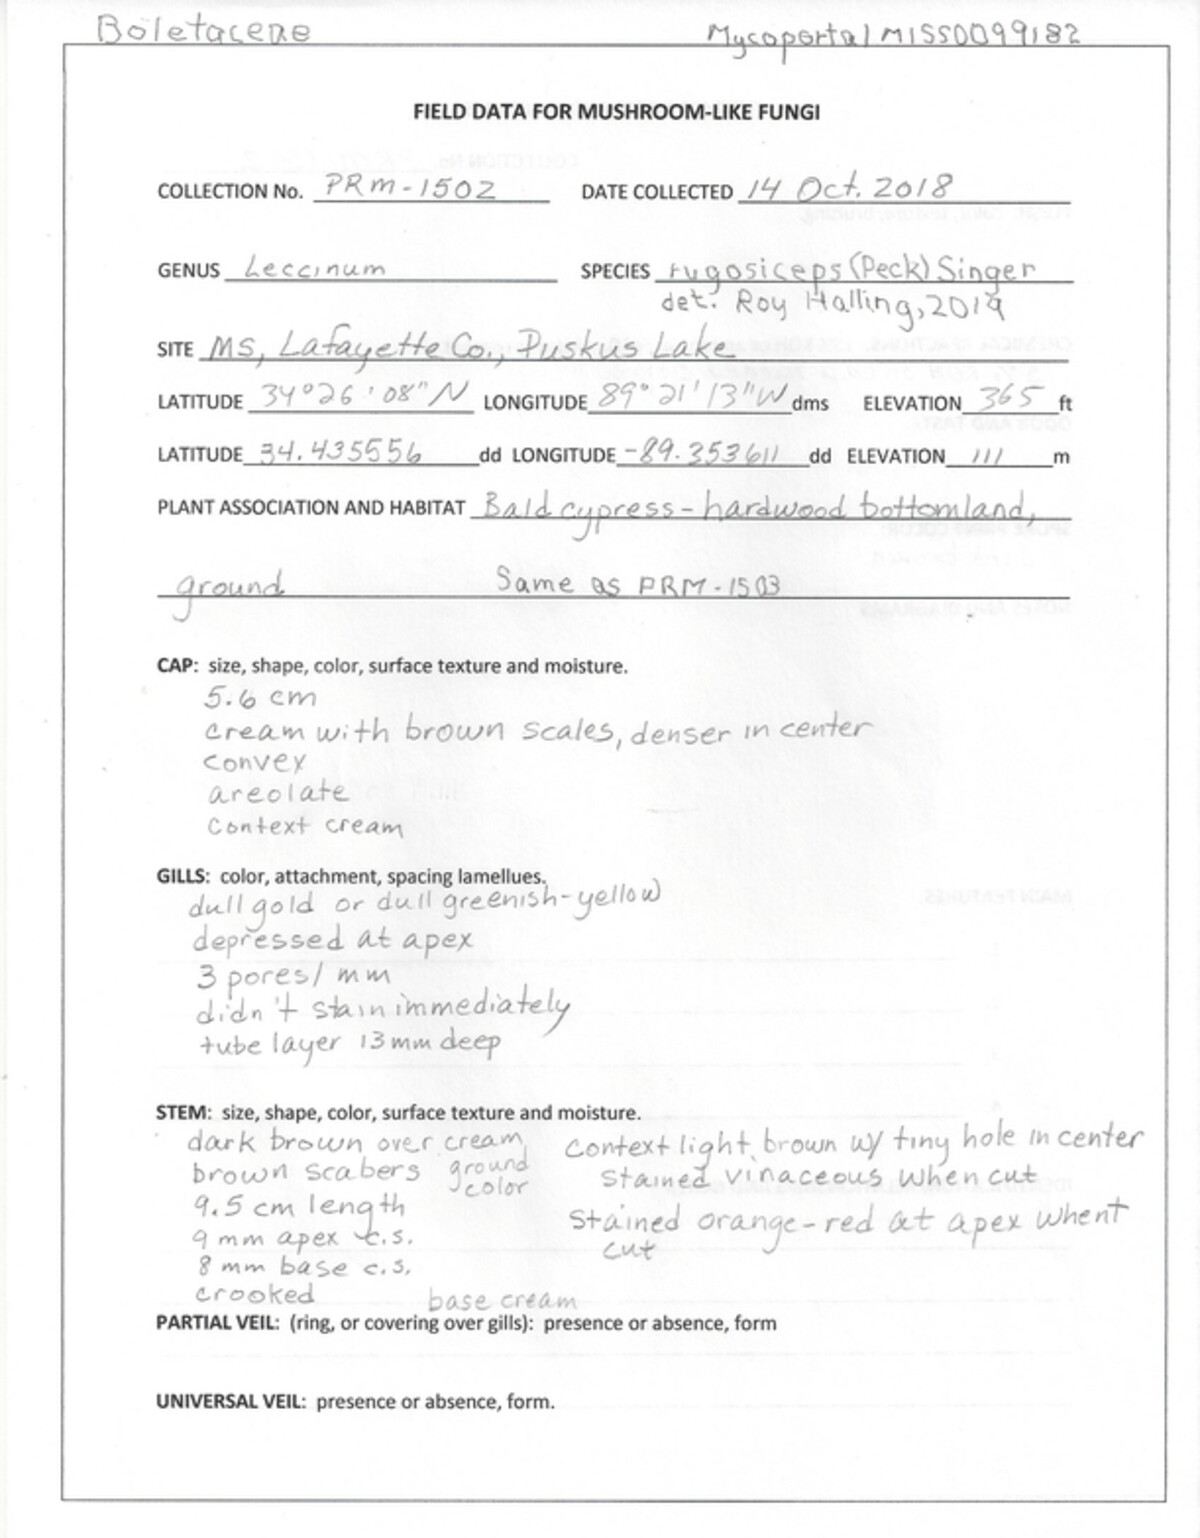 Boletaceae Mycoportal MISS0099182
FIELD DATA FOR MUSHROOM-LIKE FUNGI
COLLECTION No. PRM-1502 DATE COLLECTED 14 Oct. 2018
GENUS Leccinum SPECIES rugosiceps (Peck) Singer
det. Roy Halling, 2019
SITE MS, Lafayette Co., Puskus Lake
LATITUDE 34°26'08"N LONGITUDE 89°21'13"W dms ELEVATION 365 ft
LATITUDE 34.435556 dd LONGITUDE -89.353611 dd ELEVATION 111 m
PLANT ASSOCIATION AND HABITAT Bald cypress - hardwood bottomland,
ground Same as PRM-1503
CAP: size, shape, color, surface texture and moisture.
5.6 cm
cream with brown scales, denser in center
convex
areolate
context cream
GILLS: color, attachment, spacing lamellues.
dull gold or dull greenish-yellow
depressed at apex
3 pores/mm
didn't stain immediately
tube layer 13mm deep
STEM: size, shape, color, surface texture and moisture.
dark brown over cream ground color
brown scabers
9.5 cm length
9 mm apex c.s.
8 mm base c.s.
crooked base cream
context light brown w/ tiny hole in center
stained vinaceous when cut
stained orange-red at apex whent
cut
PARTIAL VEIL: (ring, or covering over gills): presence or absence, form
UNIVERSAL VEIL: presence or absence, form.